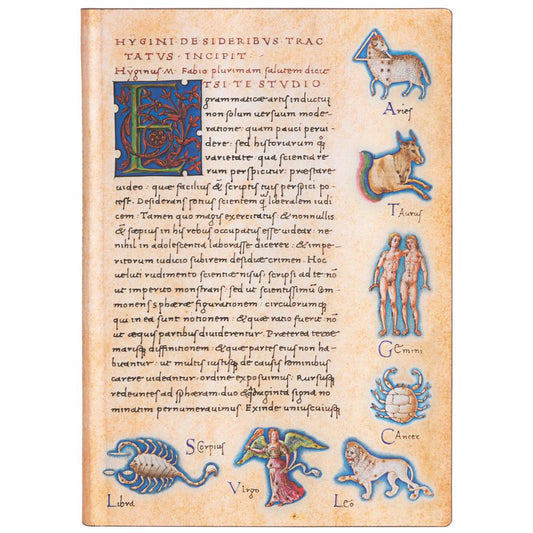 HYGINI·DE SIDERIBVS TRAC
TATVS·INCIPIT·
Hyginus M· Fabio plurimam salutem dicit
ETSI·TE STVDIO·
grammaticæ artis inductũ
non solum versuum mode-
ratione: quam pauci perui-
dere: sed historiarum q̃
varietate qua scientia re-
rum perspicitur: præstare
video: quæ facilius & scriptis tuis perspici po-
test. Desiderans potius scientem q̃ liberalem iudi
cem: Tamen quo magis exercitatus: & nonnullis
& sæpius in his rebus occupatus esse videar: ne
nihil in adolescentia laborasse dicerer: & impe-
ritorum iudicio subirem desidiæ crimen: Hoc
veluti rudimento scientiæ nisus: scripsi ad te nõ
ut imperito monstrans: sed ut scientissimũ com
monens sphæræ figurationem: circulorumq;
qui in ea sunt notionem: & quæ ratio fuerit nõ
ut æquis partibus diuiderentur. Præterea terræ
marisq; diffinitionem: & quæ partes eius non ha
bitantur: ut multis iustisq; de causis hominibus
carere videantur: ordine exposuimus. Rursusq;
redeuntes ad sphæram: duo & quadraginta signa no
minatim pernumerauimus. Exinde uniuscuiusq;
Aries
Taurus
Gemini
Cancer
Scorpius
Libra
Virgo
Leo